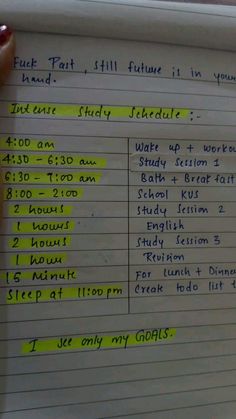 Fuck Past, still future is in your
hand.
Intense Study Schedule :-
4:00 am Wake up + workou
4:30 - 6:30 am Study Session 1
6:30 - 7:00 am Bath + Breakfast
8:00 - 2:00 School KUS
2 hours Study Session 2
1 hours English
2 hours Study Session 3
1 hour Revision
15 Minute For Lunch + Dinne
Sleep at 11:00 pm Creak todo list t
I see only my GOALS.